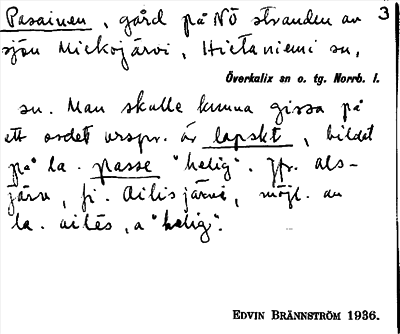 Pasainen, gård på NÖ stranden av 3
sjön Mickojärvi, Hietaniemi sn,
Överkalix sn o. tg. Norrb. l.
sn. Man skulle kunna gissa på
ett ordet urspr. är lapskt, bildat
på la. passe "helig". Jfr. Als-
järv, fi. Ailisjärvi, möjl. av
la. ailēs, a "helig".
EDVIN BRÄNNSTRÖM 1936.